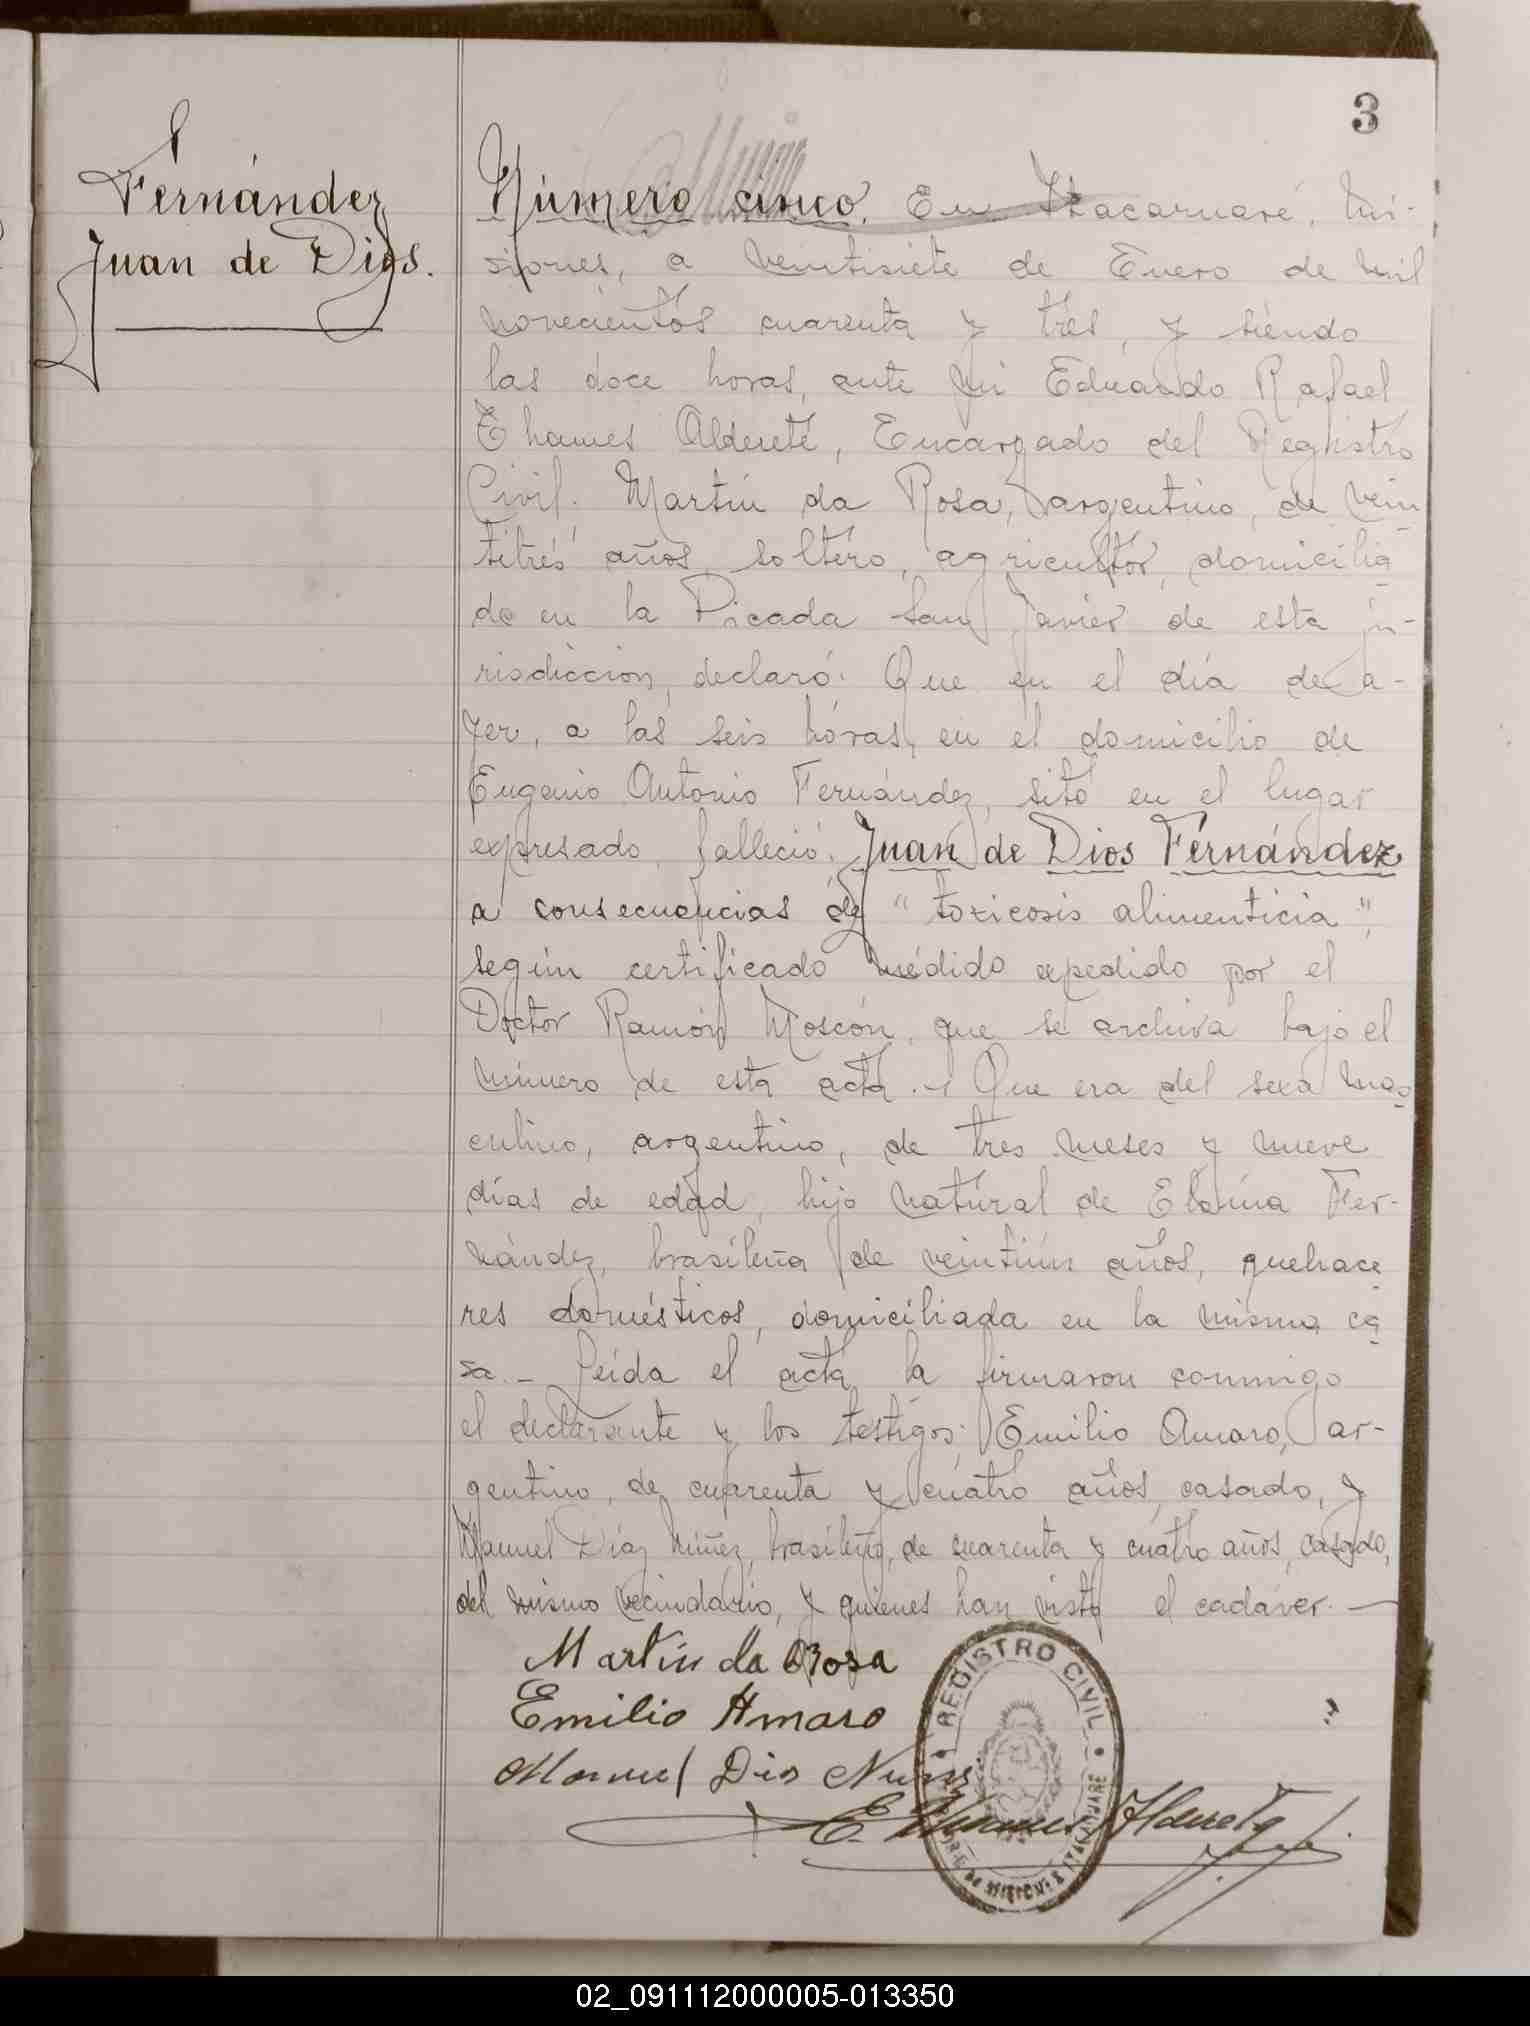 3
Fernández
Juan de Dios.
Número cinco. En Itacaruaré, Mi-
siones, a veintisiete de Enero de mil
novecientos cuarenta y tres, y siendo
las doce horas, ante mi Eduardo Rafael
Thames Alderete, Encargado del Registro
Civil. Martín da Rosa, argentino, de vein
titrés años, soltero, agricultor, domicilia
do en la Picada San Javier de esta ju-
risdicción, declaró: Que en el día de a-
yer, a las seis horas, en el domicilio de
Eugenio Antonio Fernández, sito en el lugar
expresado, falleció: Juan de Dios Fernández
a consecuencias de "toxicosis alimenticia",
según certificado médido expedido por el
Doctor Ramón Moscón, que se archiva bajo el
número de esta acta.- Que era del sexo mas
culino, argentino, de tres meses y nueve
días de edad, hijo natural de Fer-
nández, brasileña de veintiún años, quehace
res domésticos, domiciliada en la misma ca
sa.- Leída el acta, la firmaron conmigo
el declarante y los testigos: Emilio Amaro, ar-
gentino, de cuarenta y cuatro años, casado, y
Manuel Díaz Núñez, brasileño, de cuarenta y cuatro años, casado,
del mismo vecindario, y quienes han visto el cadáver.—
Martín da Rosa
Emilio Amaro
Manuel Dias Nunes
E. Thames Alderete
REGISTRO CIVIL
ITACARUARE
02_091112000005-013350